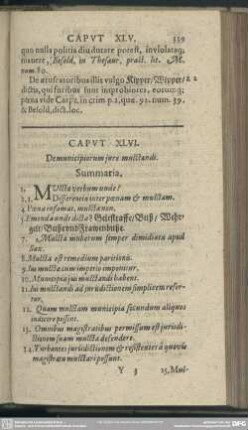 CAPVT XLV. 339
quo nulla politia diu durare potest, inviolatæq;
manere, Besold, in Thesaur. pract. lit. M.
num. 80.
De ærosratoribus illis vulgo Kipper/Wipper/
dictis, qui furibus sunt improbiores, eorumq;
pœna vide Carpz. in crim p. 2. quæ. 92. num. 39.
& Besold. dict. loc.
CAPVT XLVI.
De municipiorum jure mulctandi.
Summaria.
1. MVlcta verbum unde?
2.3. Differentia inter pœnam & mulctam.
4 Pœna infamat, mulcta non.
5 Emenda unde dicta?
7. Mulcta nobarum semper dimidiata apud
Sax.
8. Mulcta est remedium paritionis.
9. Jus mulctæ cum imperio imponitur.
10. Municipia jus mulctandi habent.
11. Jus mulctandi ad jurisdictionem simplicem refer-
tur.
12. Quam mulctam municipia secundum aliquos
indicere possint.
13. Omnibus magistratibus permissum est jurisdi-
ctionem suam mulcta defendere.
14. Turbantes jurisdictionem & resistentes à quovis
magistratu mulctari possunt.
Y 3 15. Mul-